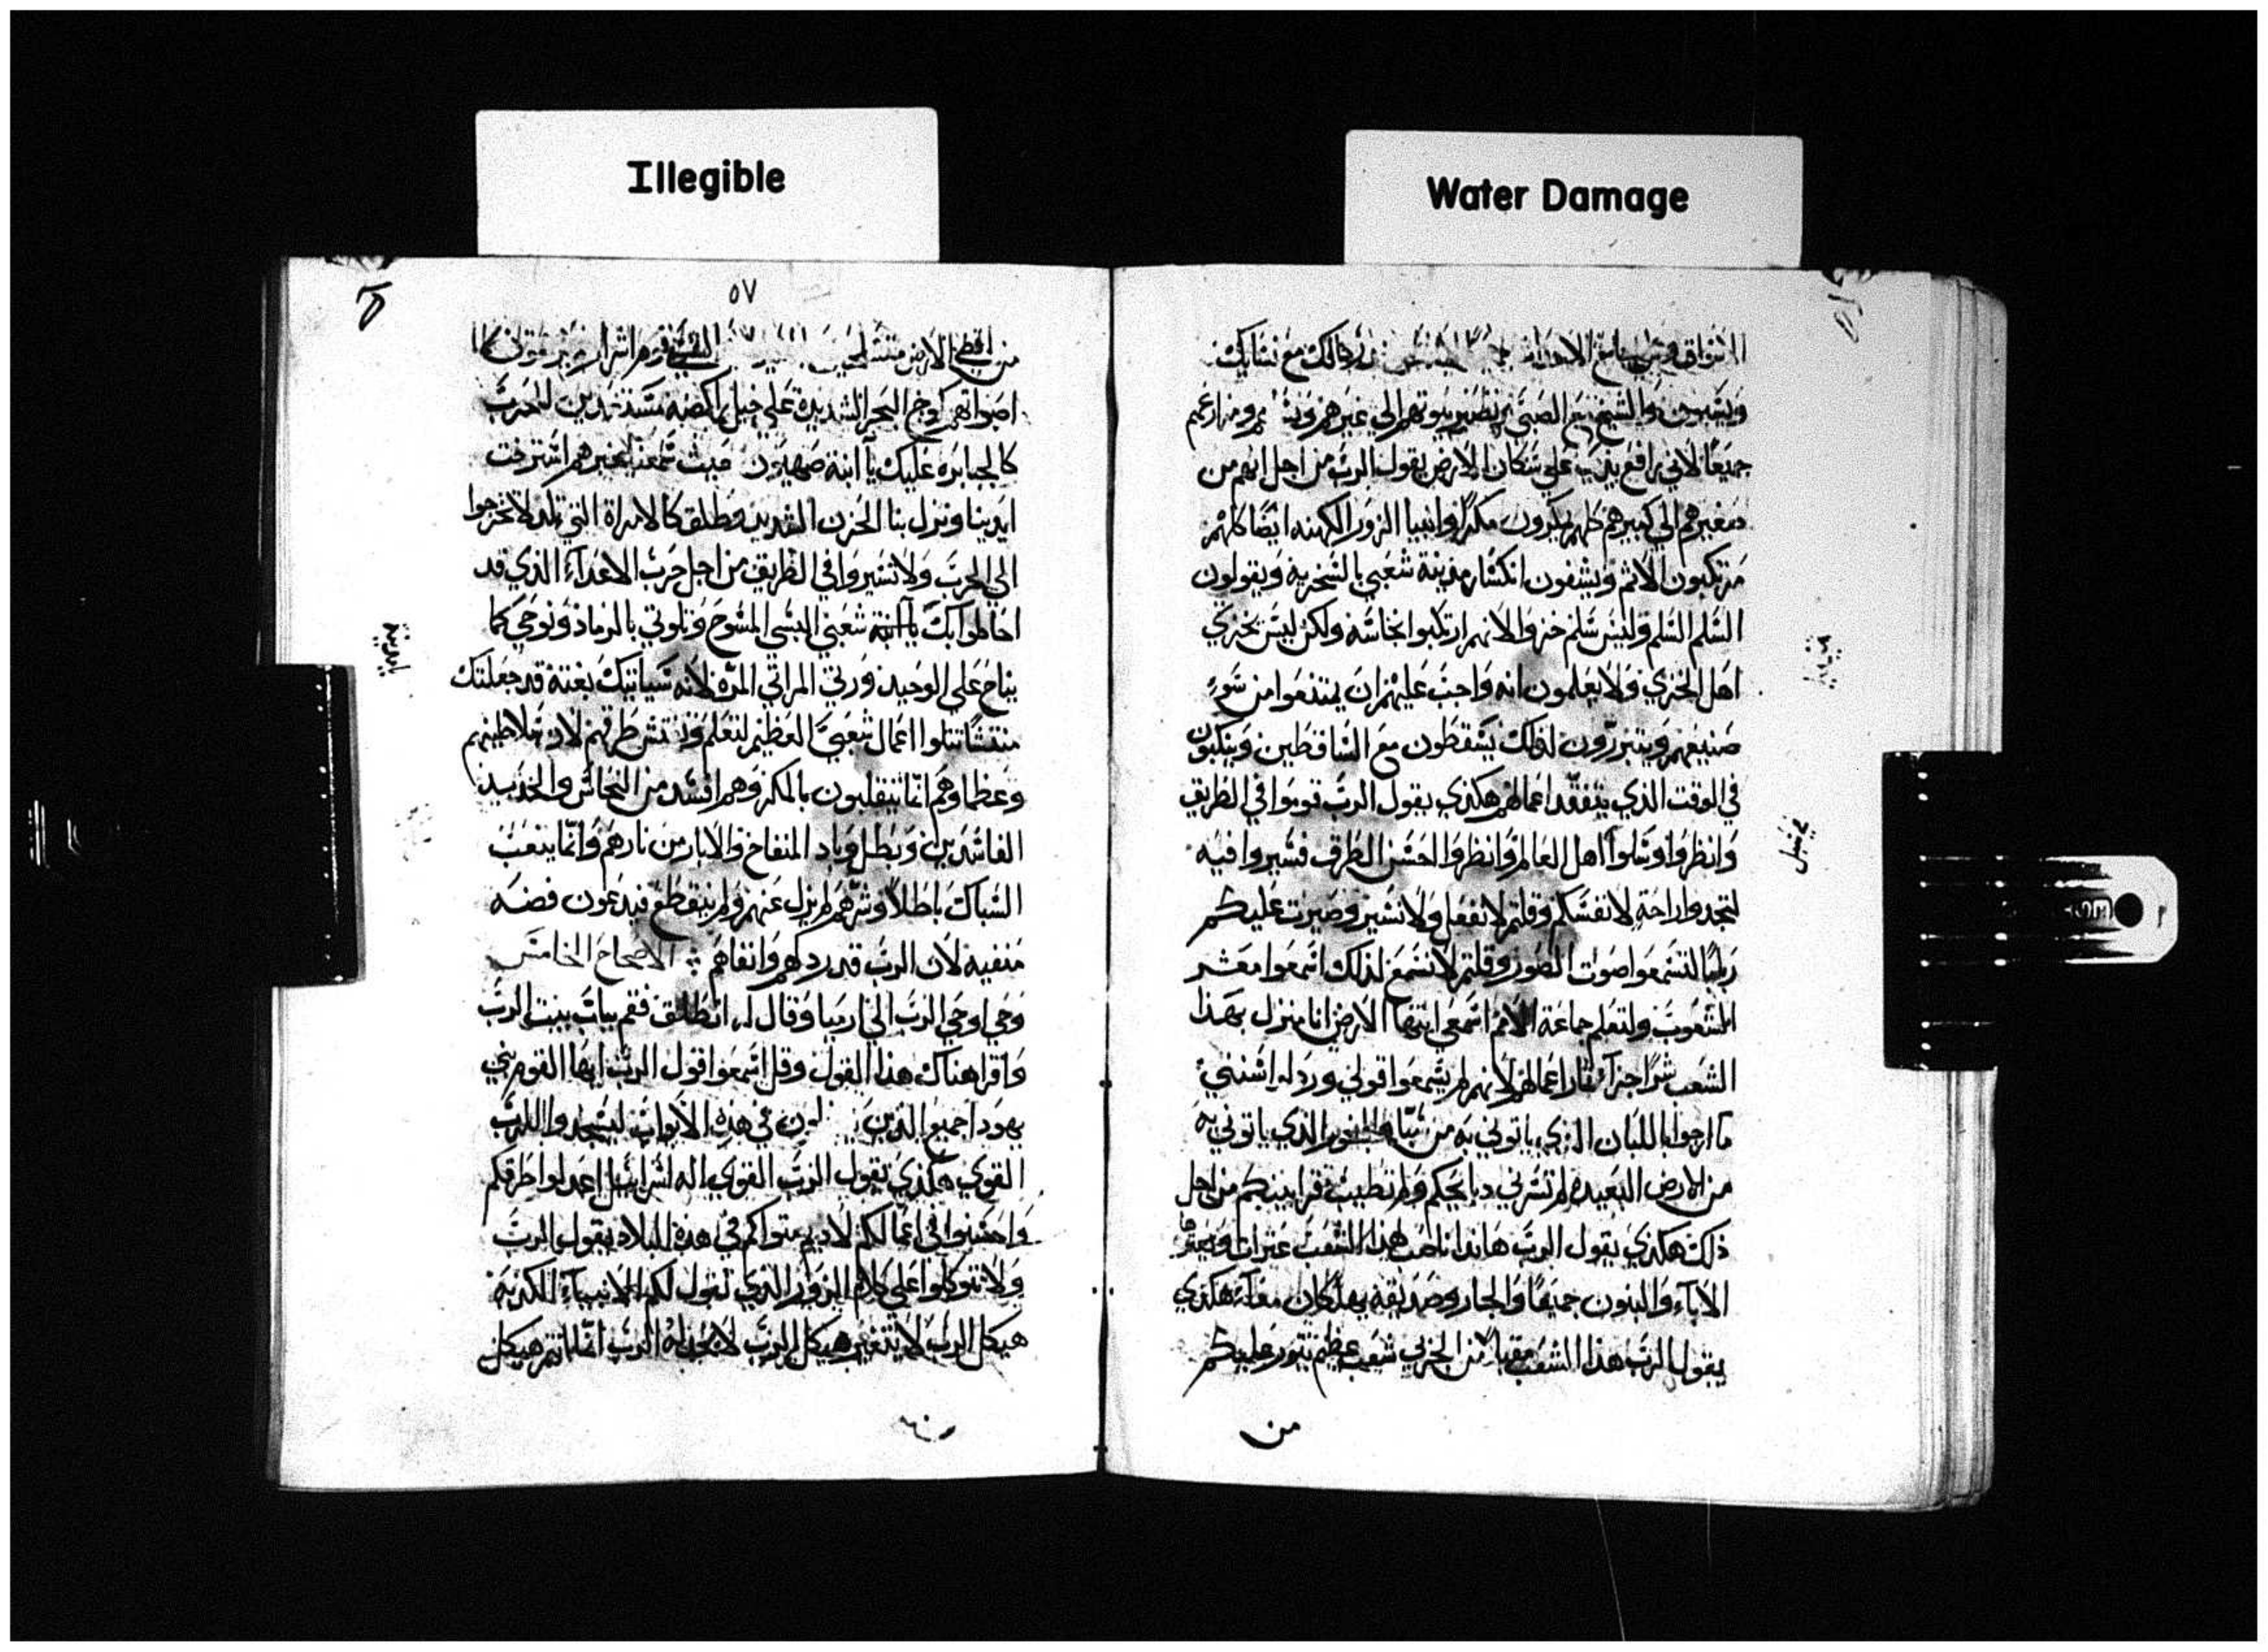 Illegible
Water Damage
الاسواق وعلى الاحداث رجالك مع نسايك
والشيخ مع الصبي وتصير بيوتهم الي غيرهم ومزارعهم
جميعًا لاني رافع يدي علي سكان الارض يقول الرب من اجل انهم من
صغيرهم الي كبيرهم كلهم يمكرون مكرًا وانبيا الزور الكهنه ايضًا كلهم
مرتكبون الاثم ويشفون انكسار مدينة شعبي بالسخريه ويقولون
السلم السلم وليس سلم خزوا لانهم ارتكبوا نجاسة ولكن ليس بخزي
اهل الخزي ولا يعلمون انه واجب عليهم ان يمتنعوا من سوء
صنيعهم ويتبررون لذلك يسقطون مع الساقطين وينكبون
في الوقت الذي يتفقد اعمالهم هكذي يقول الرب قوموا في الطريق
وانظروا وسلوا اهل العالم وانظروا احسن الطرق فسيروا فيه
لتجدوا راحة لانفسكم وقلتم لا نفعل ولا نسير وصيرت عليكم
رقبًا لتسمعوا صوت الصور وقلتم لا نسمع لذلك اسمعوا معشر
الشعوب ولتعلم جماعة الامم اسمعي ايتها الارض انا منزل بهذا
الشعب شرًا جزآ ثمار اعمالهم لانهم لم يسمعوا قولي وردلوا سنتي
ما ارجوا باللبان الذي ياتوني به من سبا والبخور الذي ياتوني به
من الارض البعيده لم تسرني دبايحكم ولم تطيب قرابينكم من اجل
ذلك هكذي يقول الرب هانذا ناصب لهذا الشعب عثرات ويعثر
الاباء والبنون جميعًا والجار وصديقه يهلكان معًا هكذي
يقول الرب هذا الشعب مقبلا من الجربي شعب عظيم يثور عليكم
من
٥٧
من اقطي الارض القسي قوم اشرار
اصواتهم كموج البحر الشديده علي خيل راكضه مستعدين للحرب
كالجبابره عليك يا ابنة صهيون حيث سمعنا بخبرهم استرخت
ايدينا ونزل بنا الحزن الشديد وطلق كالامراة التي تلد لا تخرجوا
الي الحرب ولا تسيروا في الطريق من اجل حرب الاعدآء الذي قد
احاطوا بك يا ابنة شعبي البسي المسوح وتلوتي بالرماد ونوحي كما
يناح علي الوحيد ورتي المراتي المرّه لانه سياتيك بغتة قد جعلتك
شعبي العظيم لتعلم طرقهم لان سلاطينهم
وعظماوهم انما يتقلبون بالمكر وهم افسد من النحاس والحديد
الفاسدين وبطل وباد المنفاخ والابار من نارهم وانما يتعب
السباك باطلاً وشرهم لم يزل عنهم ولم ينقطع فيدعون فضه
منفيه لان الرب قد ردلهم وانفاهم الاصحاح الخامس
وحي اوحي الرب الي ارميا وقال له انطلق فقم بباب بيت الرب
واقرا هناك هذا القول وقل اسمعوا قول الرب ايها القوم بني
يهودا جميع الذين في هذه الابواب ليسجدوا للرب
القوي هكذي يقول الرب القوي اله اسراييل اعدلوا طرقكم
واحسنوا في اعمالكم لاديم متواكم في هذه البلاد يقول الرب
ولا تتوكلوا علي كلام الزور الذي تقول لكم الانبيآء الكدبة
هيكل الرب لا يتغير هيكل الرب الرب انما انتم هيكل